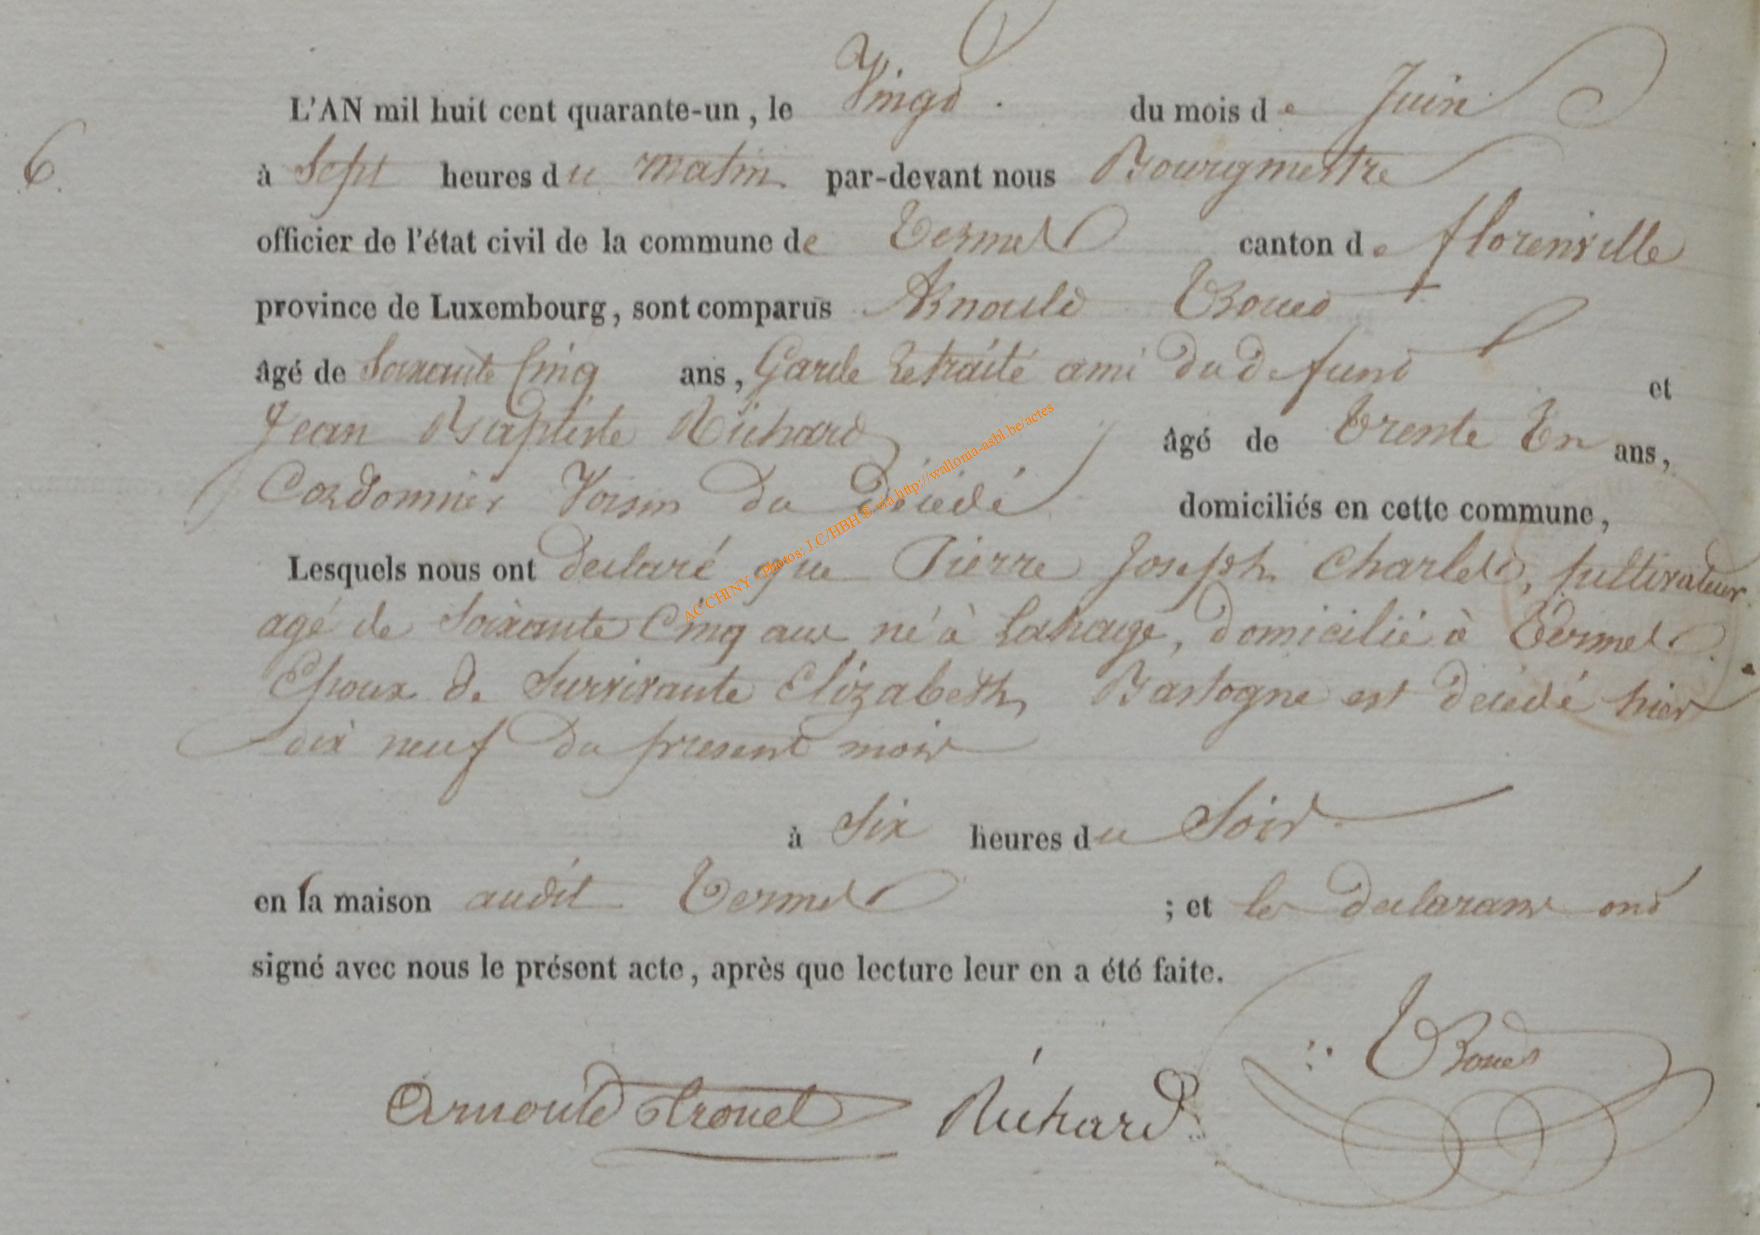 L'AN mil huit cent quarante-un, le Vingt du mois de Juin
6. à Sept heures du matin par-devant nous Bourgmestre
officier de l'état civil de la commune de Termes canton de florenville
province de Luxembourg, sont comparus Arnould Trouet
âgé de Soixante Cinq ans, Garde retraité ami du defunt et
Jean Baptiste Richard âgé de Trente Un ans,
Cordonnier Voisin du décédé domiciliés en cette commune,
Lesquels nous ont declaré que Pierre Joseph Charlet, Cultivateur
agé de Soixante Cinq ans né à Lahage, domicilié à Termes
Epoux de Survivante Elizabeth Bastogne est décédé hier
dix neuf du present mois
à Six heures du Soir
en sa maison audit Termes ; et les declarans ont
signé avec nous le présent acte, après que lecture leur en a été faite.
Arnould trouet Richard Trouet
AC CHINY - Photos: J.C/HBH © via http://wallonia-asbl.be/actes